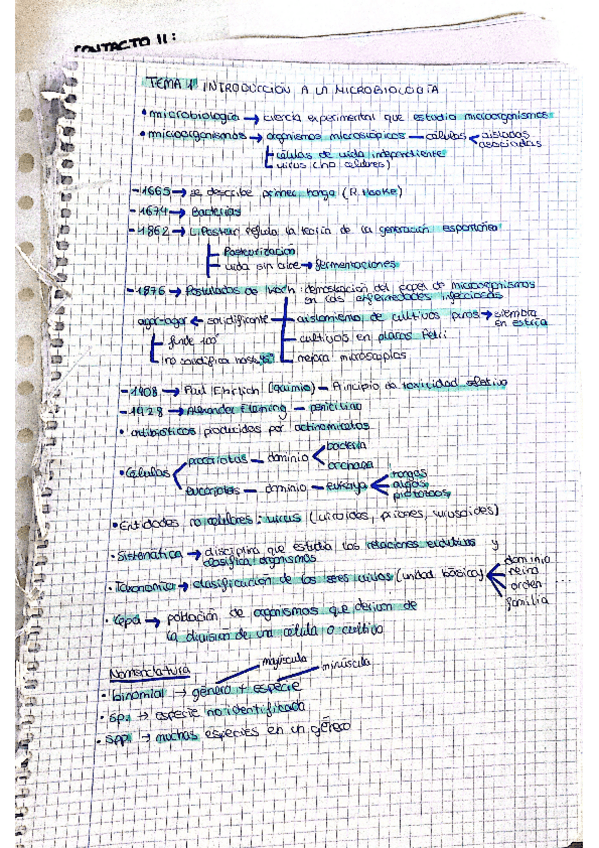 CONTACTO II:
TEMA 1 INTRODUCCIÓN A LA MICROBIOLOGÍA
• microbiología → ciencia experimental que estudia microorganismos
• microorganismos → organismos microscópicos — células < aisladas
asociadas
células de vida independiente
virus (no celulares)
- 1665 → se describe primer hongo (R. Hooke)
- 1674 → Bacterias
- 1862 → L. Pasteur refuta la teoría de la generación espontánea
Pasteurización
vida sin aire → fermentaciones
- 1876 → Postulados de Koch: demostración del papel de microorganismos
en las enfermedades infecciosas
agar-agar ← solidificante — aislamiento de cultivos puros → siembra
en estría
funde 100°
cultivos en placas Petri
no solidifica hasta
mejora microscopios
- 1908 → Paul Ehrlich (quimio) — Principio de toxicidad selectiva
- 1928 → Alexander Fleming — penicilina
• antibióticos producidos por actinomicetos
• Células
procariotas — dominio < bacteria
archaea
eucariotas — dominio — eukarya < hongos
algas
protozoos
• Entidades no celulares: virus (viroides, priones, virusoides)
• Sistemática → disciplina que estudia las relaciones evolutivas y
clasifica organismos
• Taxonomía → clasificación de los seres vivos (unidad básica) < dominio
reino
orden ...
familia
• Cepa → población de organismos que derivan de
la división de una célula o cultivo
Nomenclatura
mayúscula
minúscula
• binomial → género + especie
• sp. → especie no identificada
• spp. → muchas especies en un género